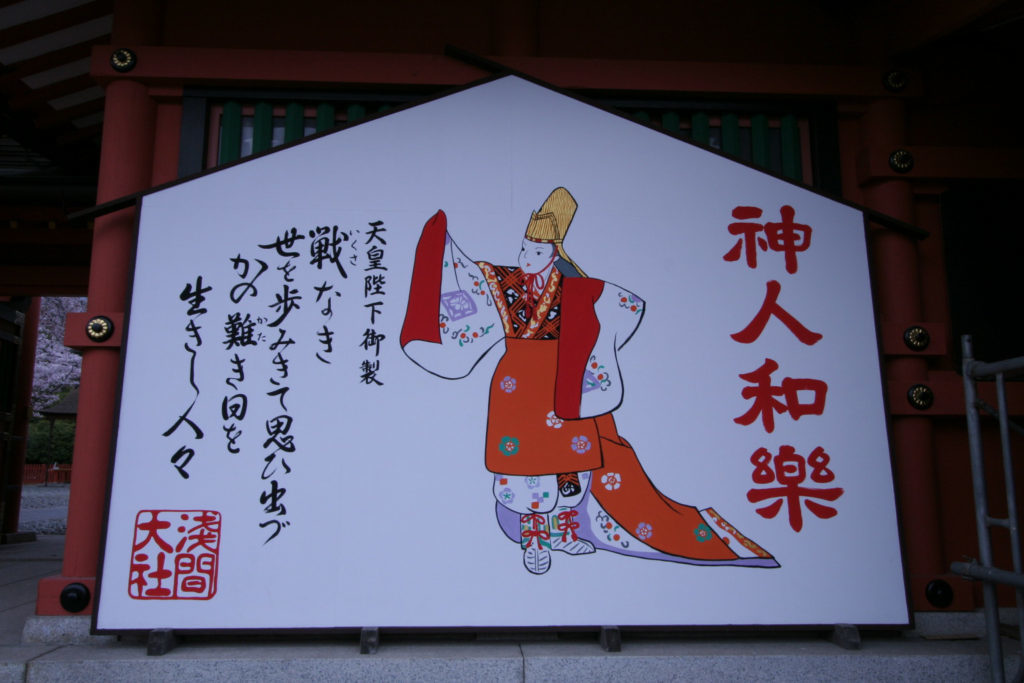 神人和樂
天皇陛下御製
戦なき
いくさ
世を歩みきて思ひ出づ
かの難き日を
かた
生きし人々
浅間
大社